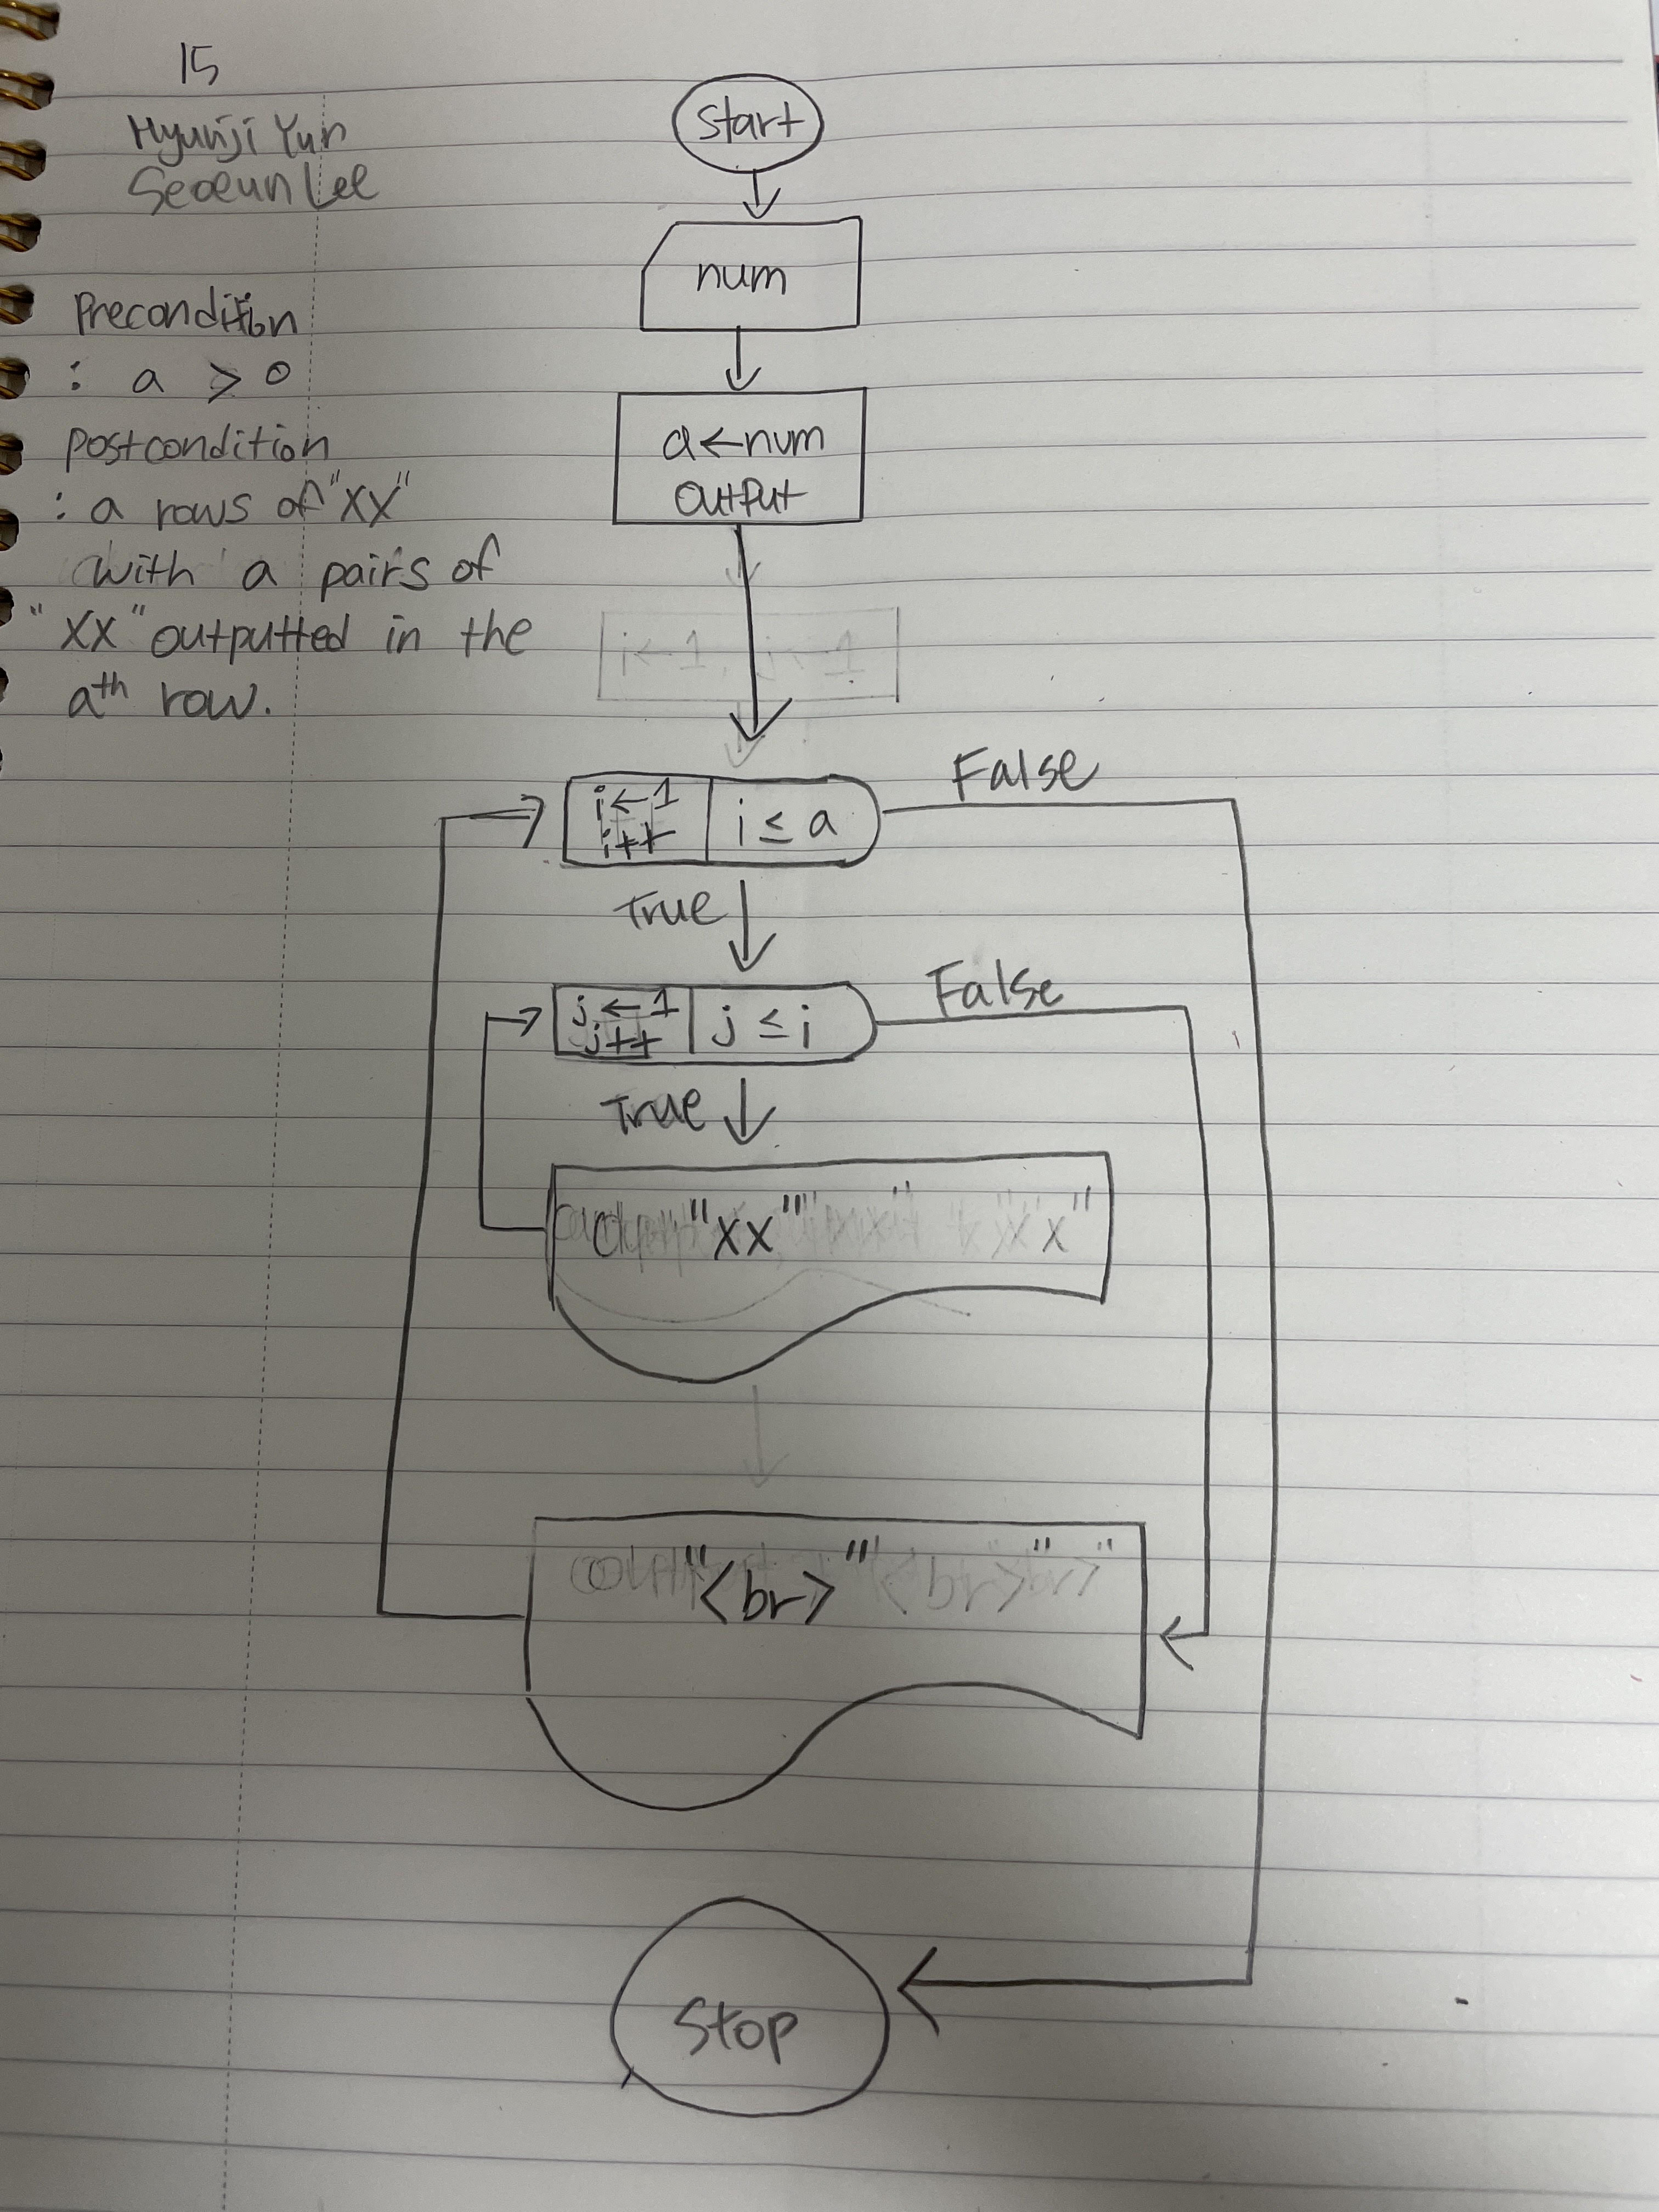 15
Hyunji Yun
Seoeun Lee
Precondition
: a > 0
Postcondition
: a rows of "XX"
with a pairs of
"XX" outputted in the
ath row.
Start
num
a←num
output
i←1, j←1
i←1
i++
i ≤ a
False
True
j←1
j++
j ≤ i
False
True
"XX"
"<br>"
Stop